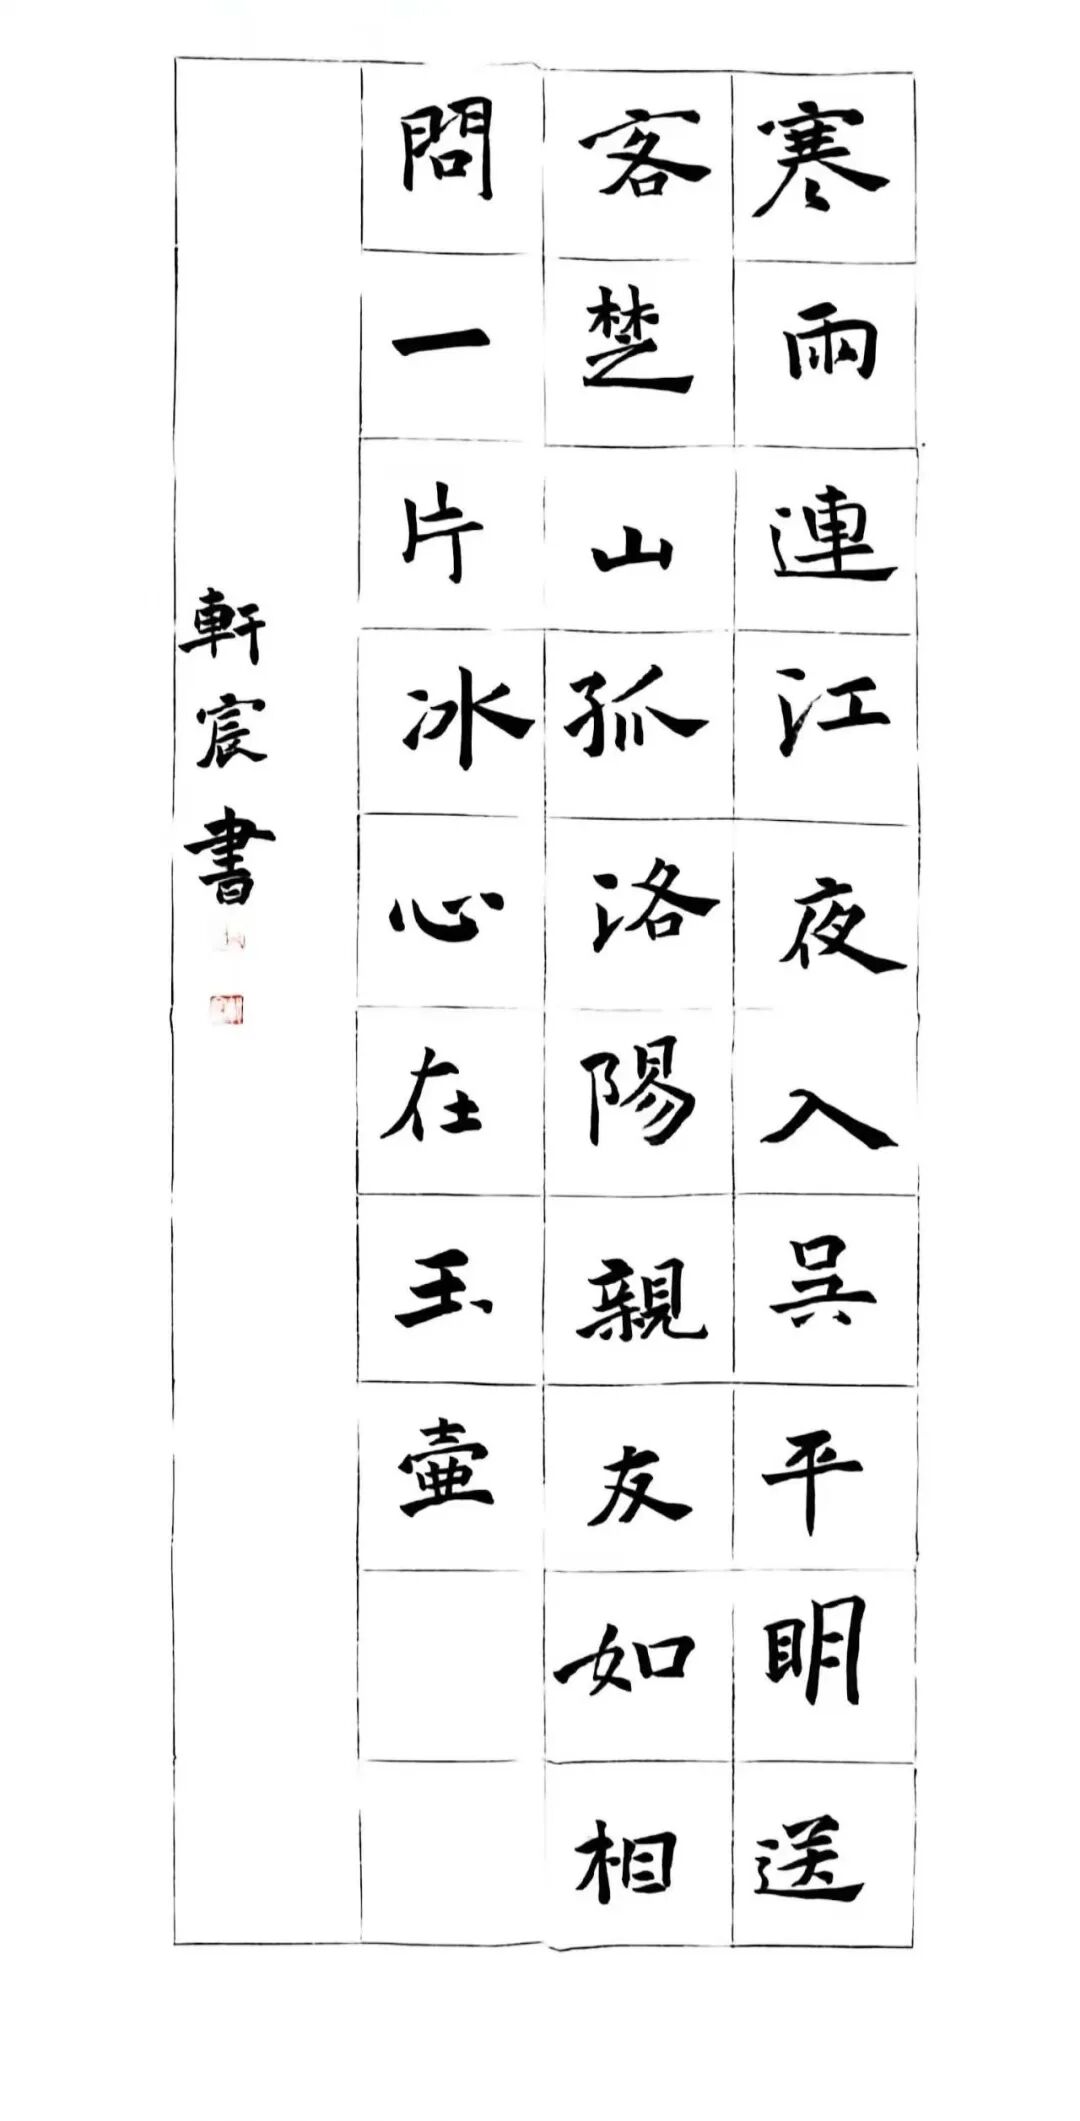 寒雨連江夜入吳平明送
客楚山孤洛陽親友如相
問一片冰心在玉壺
軒宸書